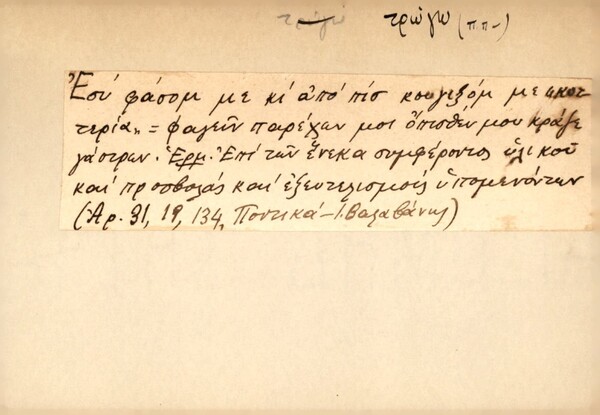 τρώγω τρώγω (ππ-)
Ἐσύ φάσομ με κι ἀπό πίσ κουγιξόμ με "κοτ
τερία" = φαγεῖν παρέχων μοι ὄπισθέν μου κρᾶζε
γάστρων. Ἑρμ. Ἐπί τῶν ἕνεκα συμφέροντος ὑλικοῦ
καί προσβολάς καί ἐξευτελισμούς ὑπομενόντων
(Ἀρ. 31, 19, 134, Ποντικά - Ι. Βαλαβάνης)